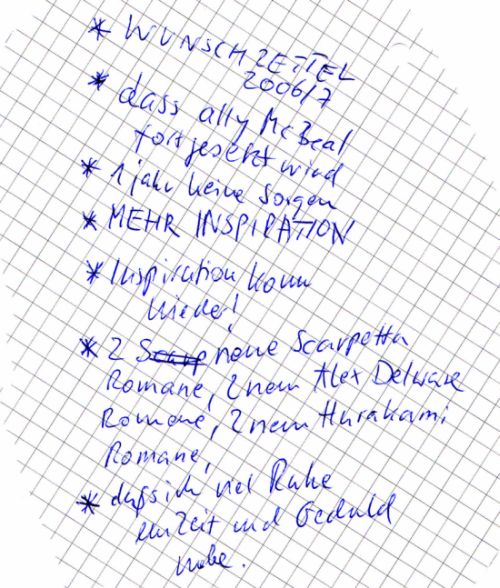 * WUNSCHZETTEL
2006/7
* dass ally McBeal
fortgesetzt wird
* 1 Jahr keine Sorgen
* MEHR INSPIRATION
* Inspiration komm
wieder!
* 2 Scarp neue Scarpetta
Romane, 2 neue Alex Delware
Romane, 2 neue Murakami
Romane,
* daß ich viel Ruhe
Zeit und Geduld
habe.